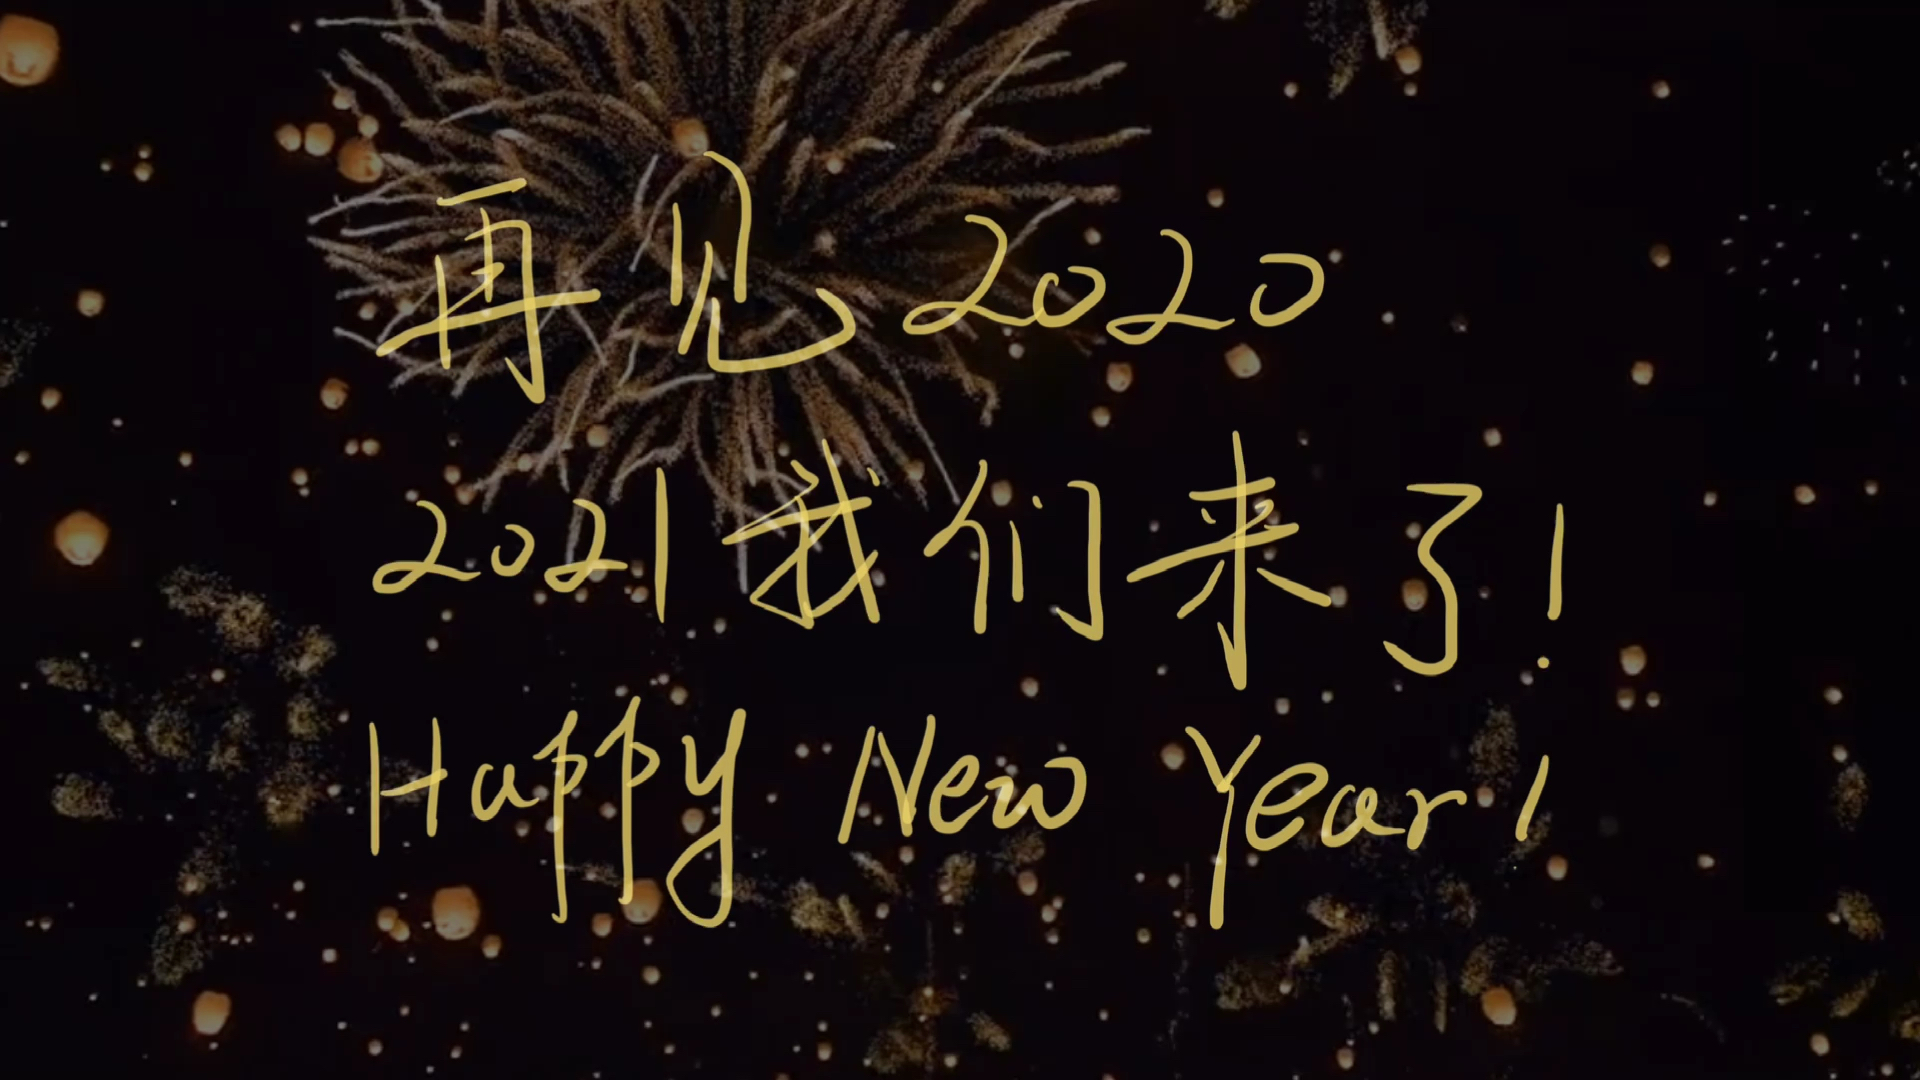 再见2020
2021我们来了!
Happy New Year!